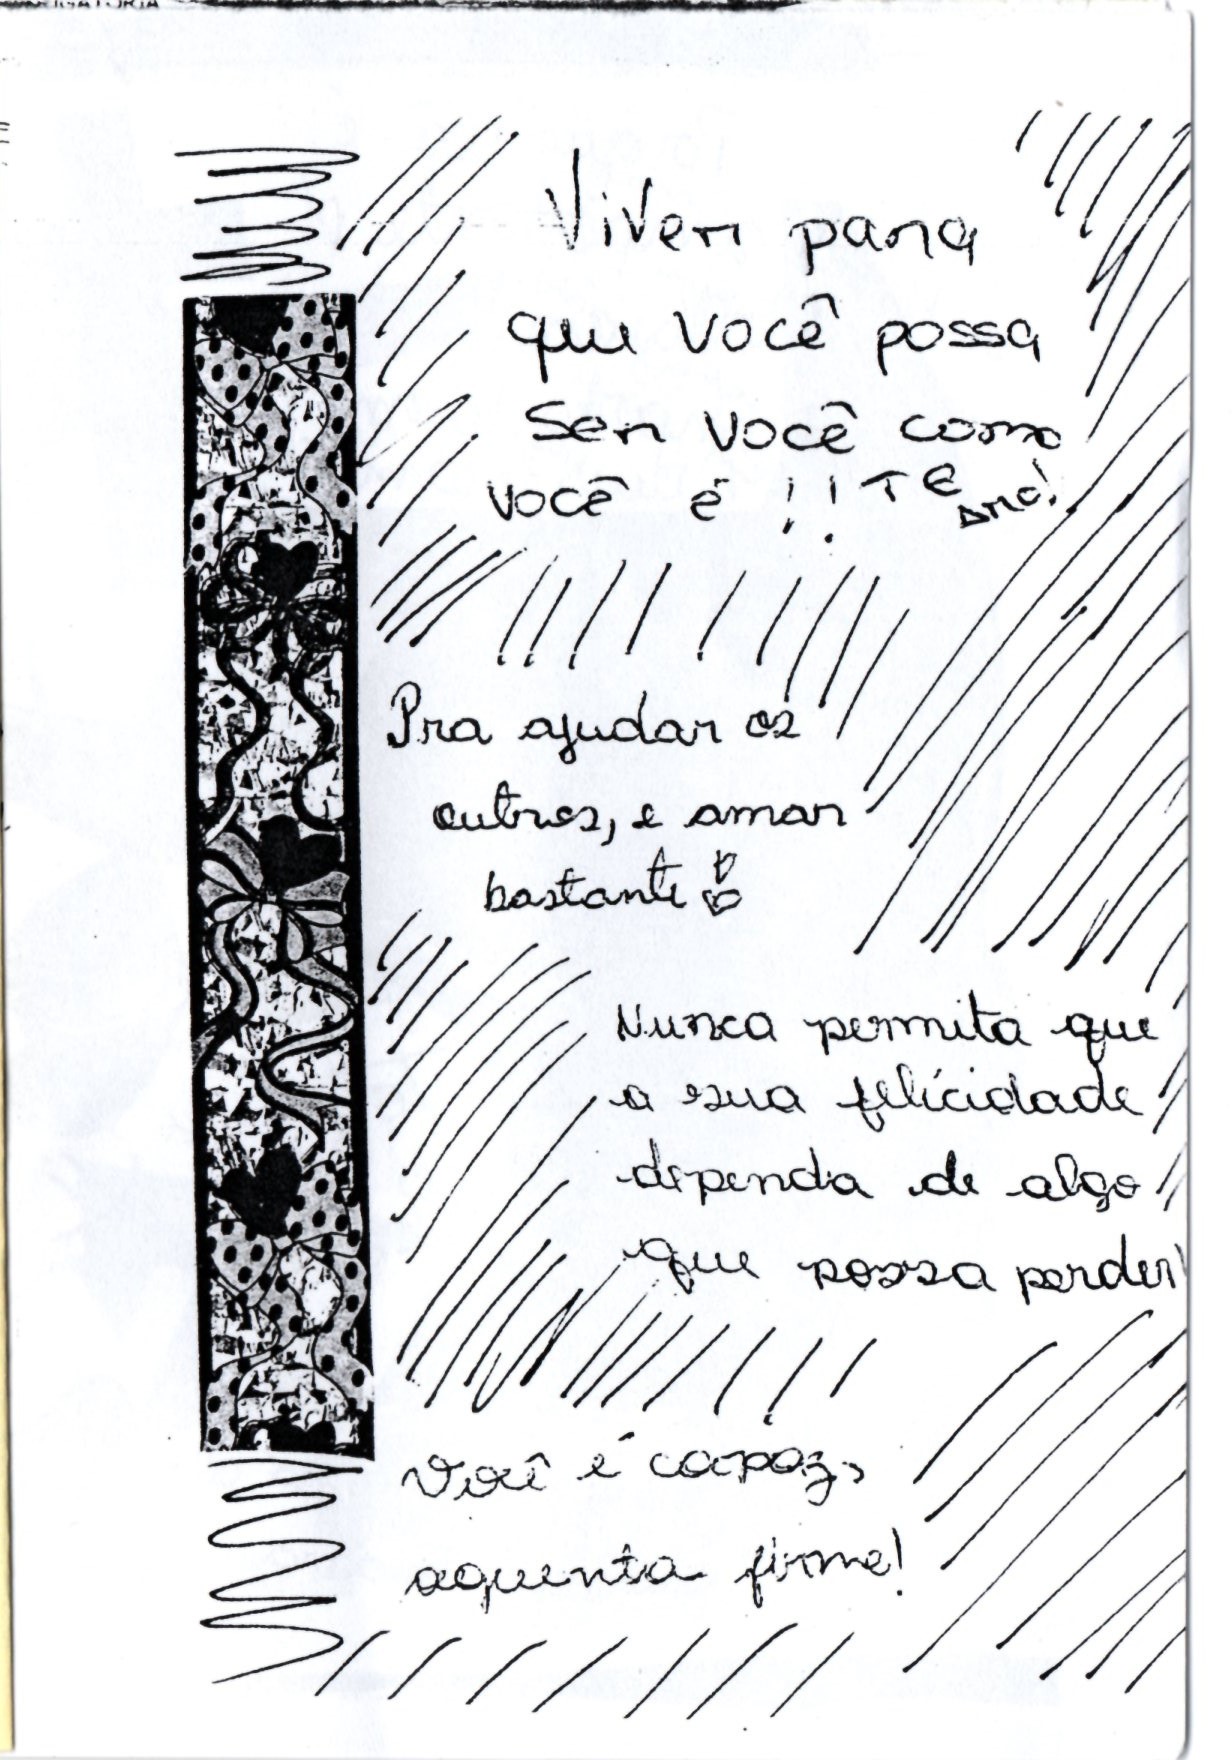 IGATORIA
Viver para
que você possa
Ser você como
você é !! TE
AMO!
Pra ajudar os
outros, e amar
bastante
Nunca permita que
a sua felicidade
dependa de algo
que possa perder!
Você é capaz,
aguenta firme!